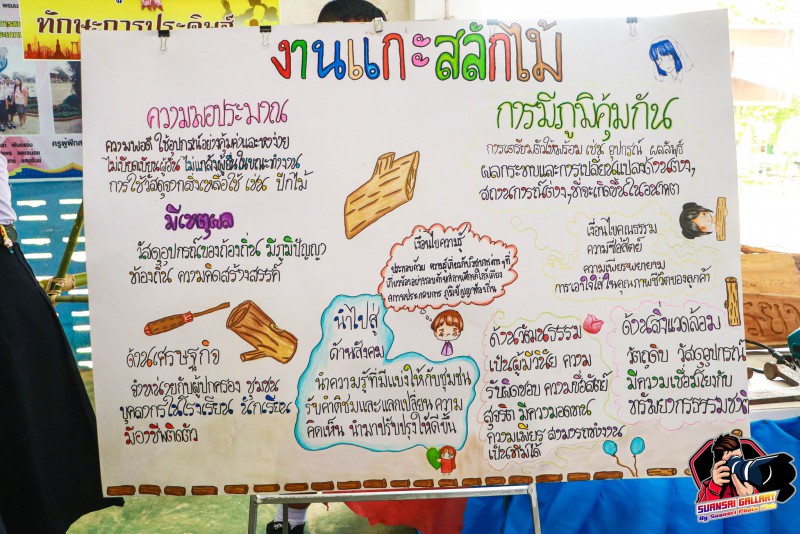 ทักษะการประดิษฐ์
งานแกะสลักไม้
ความพอประมาณ
ความพอดี ใช้อุปกรณ์อย่างคุ้มค่าและหาง่าย
ไม่เบียดเบียนผู้อื่น ไม่แกล้งผู้อื่นในขณะทำงาน
การใช้วัสดุจากสิ่งเหลือใช้ เช่น ปีกไม้
มีเหตุผล
วัสดุอุปกรณ์ของท้องถิ่น มีภูมิปัญญา
ท้องถิ่น ความคิดสร้างสรรค์
ด้านเศรษฐกิจ
จำหน่ายกับผู้ปกครอง ชุมชน
บุคลากรในโรงเรียน นักเรียน
มีอาชีพติดตัว
การมีภูมิคุ้มกัน
การเตรียมตัวให้พร้อม เช่น อุปกรณ์ ผลลัพธ์
ผลกระทบและการเปลี่ยนแปลงด้านต่างๆ
สถานการณ์ต่างๆที่จะเกิดขึ้นในอนาคต
เงื่อนไขความรู้
ประกอบด้วย ความรู้เกี่ยวกับวิชาการต่างๆที่
เงื่อนไขคุณธรรม
ความซื่อสัตย์
ความเพียรพยายาม
การเอาใจใส่ในคุณภาพชีวิตของลูกค้า
นำไปสู่
ด้านสังคม
นำความรู้ที่มีแบ่งให้กับชุมชน
รับคำติชมและแลกเปลี่ยนความ
คิดเห็น นำมาปรับปรุงให้ดีขึ้น
ด้านวัฒนธรรม
เป็นผู้มีวินัย ความ
รับผิดชอบ ความซื่อสัตย์
สุจริต มีความอดทน
ความเพียร สามารถทำงาน
เป็นทีมได้
ด้านสิ่งแวดล้อม
วัตถุดิบ วัสดุอุปกรณ์
มีความเชื่อมโยงกับ
ทรัพยากรธรรมชาติ
SUANSRI GALLARY
By Suansri Photo